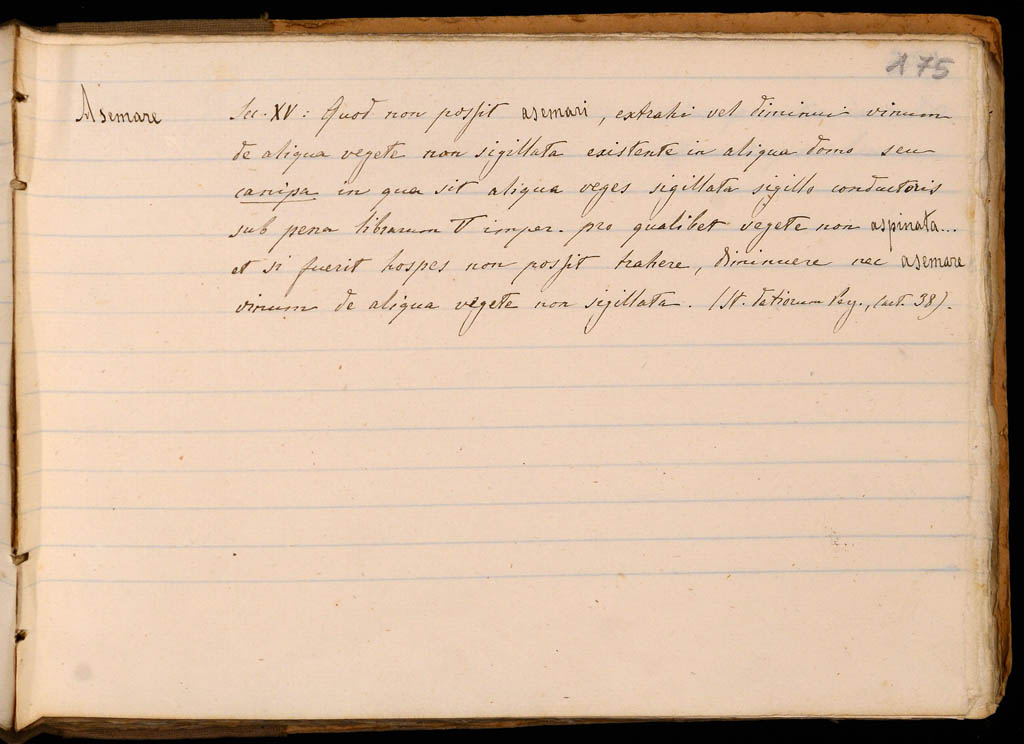 175
Asemare Sec. XV: Quod non possit asemari, extrahi vel diminui vinum
de aliqua vegete non sigillata existente in aliqua domo seu
canipa in qua sit aliqua veges sigillata sigillo conductoris
sub pena librarum T imper. pro qualibet vegete non aspinata...
et si fuerit hospes non possit trahere, diminuere nec asemare
vinum de aliqua vegete non sigillata. (St. datiorum Reg., (art. 38).